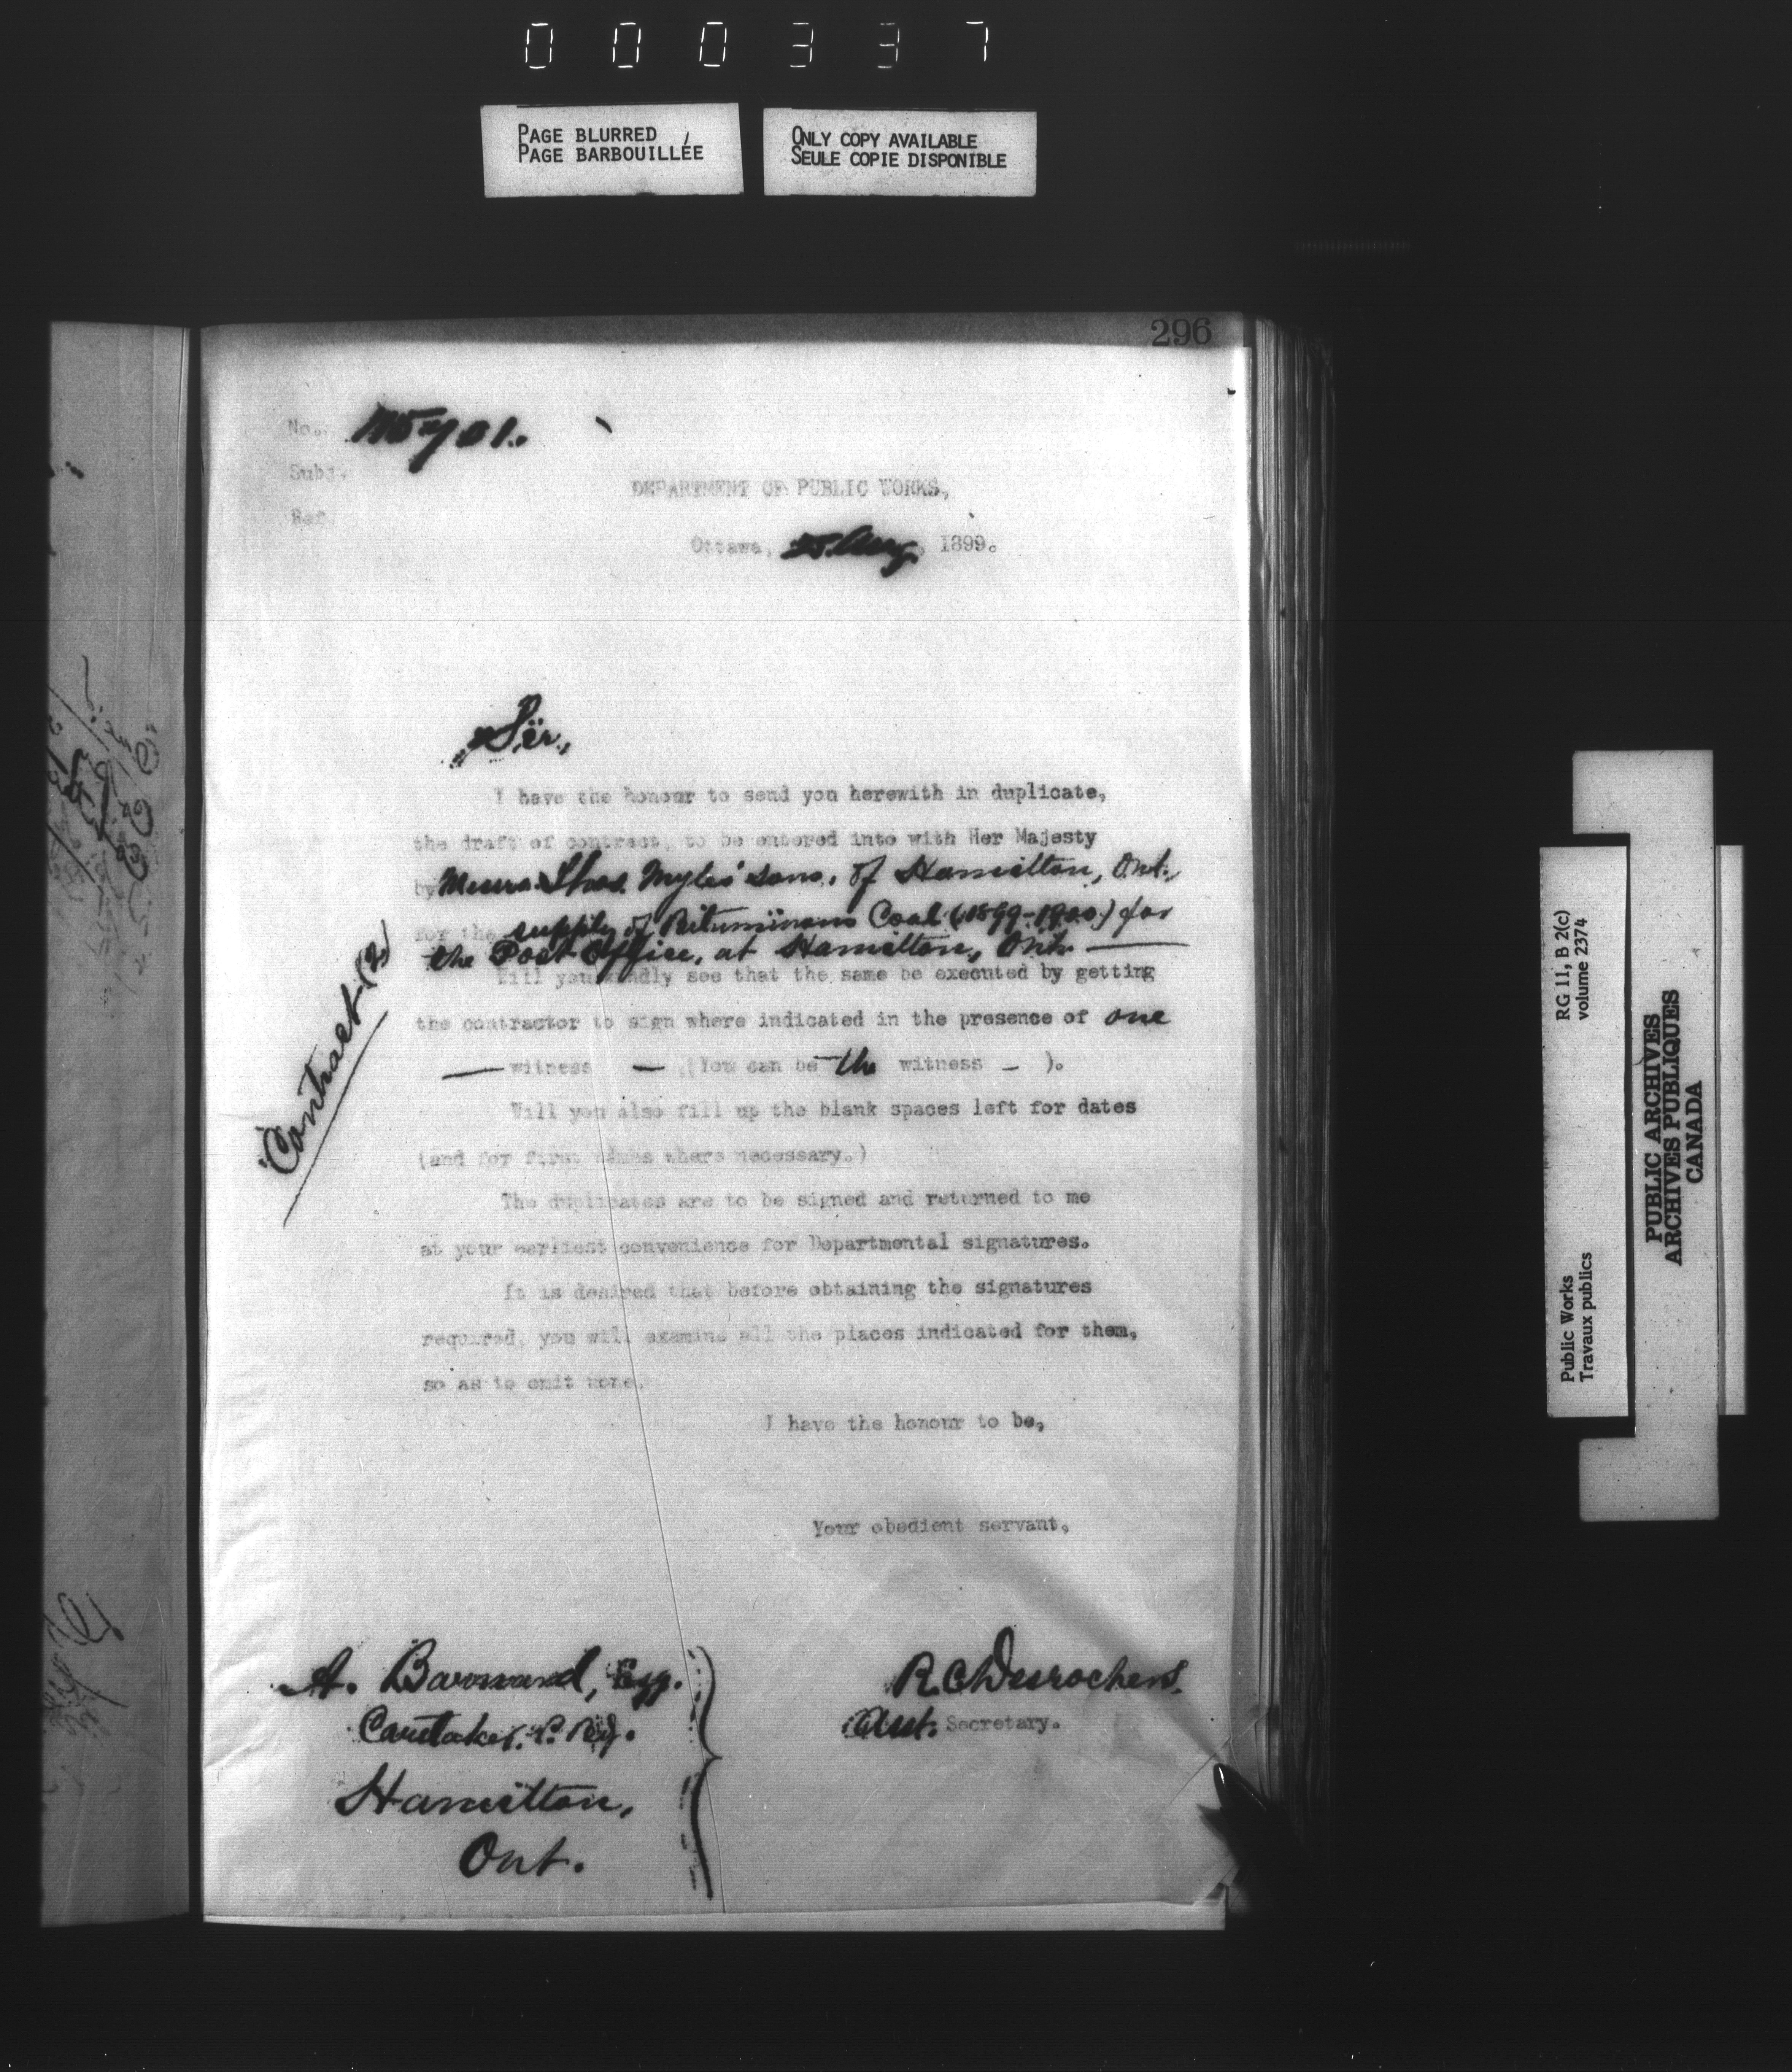 000337
PAGE BLURRED
PAGE BARBOUILLÉE
ONLY COPY AVAILABLE
SEULE COPIE DISPONIBLE
296
No.
Subj.
Ref.
DEPARTMENT OF PUBLIC WORKS,
Ottawa, Aug, 1899.
Sir,
I have the honour to send you herewith in duplicate,
the draft of contract, to be entered into with Her Majesty
by Messrs. Thos. Myles' Sons, of Hamilton, Ont.,
for the supply of Bituminous Coal (1899-1900) for
the Post Office, at Hamilton, Ont. —
Will you kindly see that the same be executed by getting
the contractor to sign where indicated in the presence of one
— witness — (You can be the witness – ).
Will you also fill up the blank spaces left for dates
(and for first names where necessary.)
The duplicates are to be signed and returned to me
at your earliest convenience for Departmental signatures.
It is desired that before obtaining the signatures
required, you will examine all the places indicated for them,
so as to omit none.
I have the honour to be,
Your obedient servant,
Contract (2)
A. Esq.
Caretaker, P. Bg.
Hamilton,
Ont.
R C Desrochers.
Asst. Secretary.
RG 11, B 2(c)
volume 2374
Public Works
Travaux publics
PUBLIC ARCHIVES
ARCHIVES PUBLIQUES
CANADA